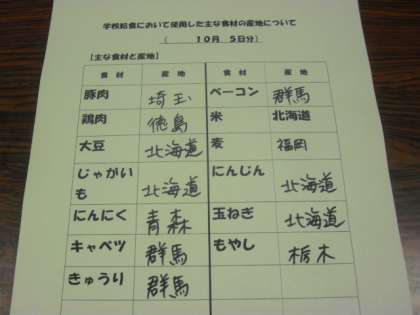 学校給食において使用した主な食材の産地について
( 10月 5日分)
【主な食材と産地】
食材 産地 食材 産地
豚肉 埼玉 ベーコン 群馬
鶏肉 徳島 米 北海道
大豆 北海道 麦 福岡
じゃがいも 北海道 にんじん 北海道
にんにく 青森 玉ねぎ 北海道
キャベツ 群馬 もやし 栃木
きゅうり 群馬